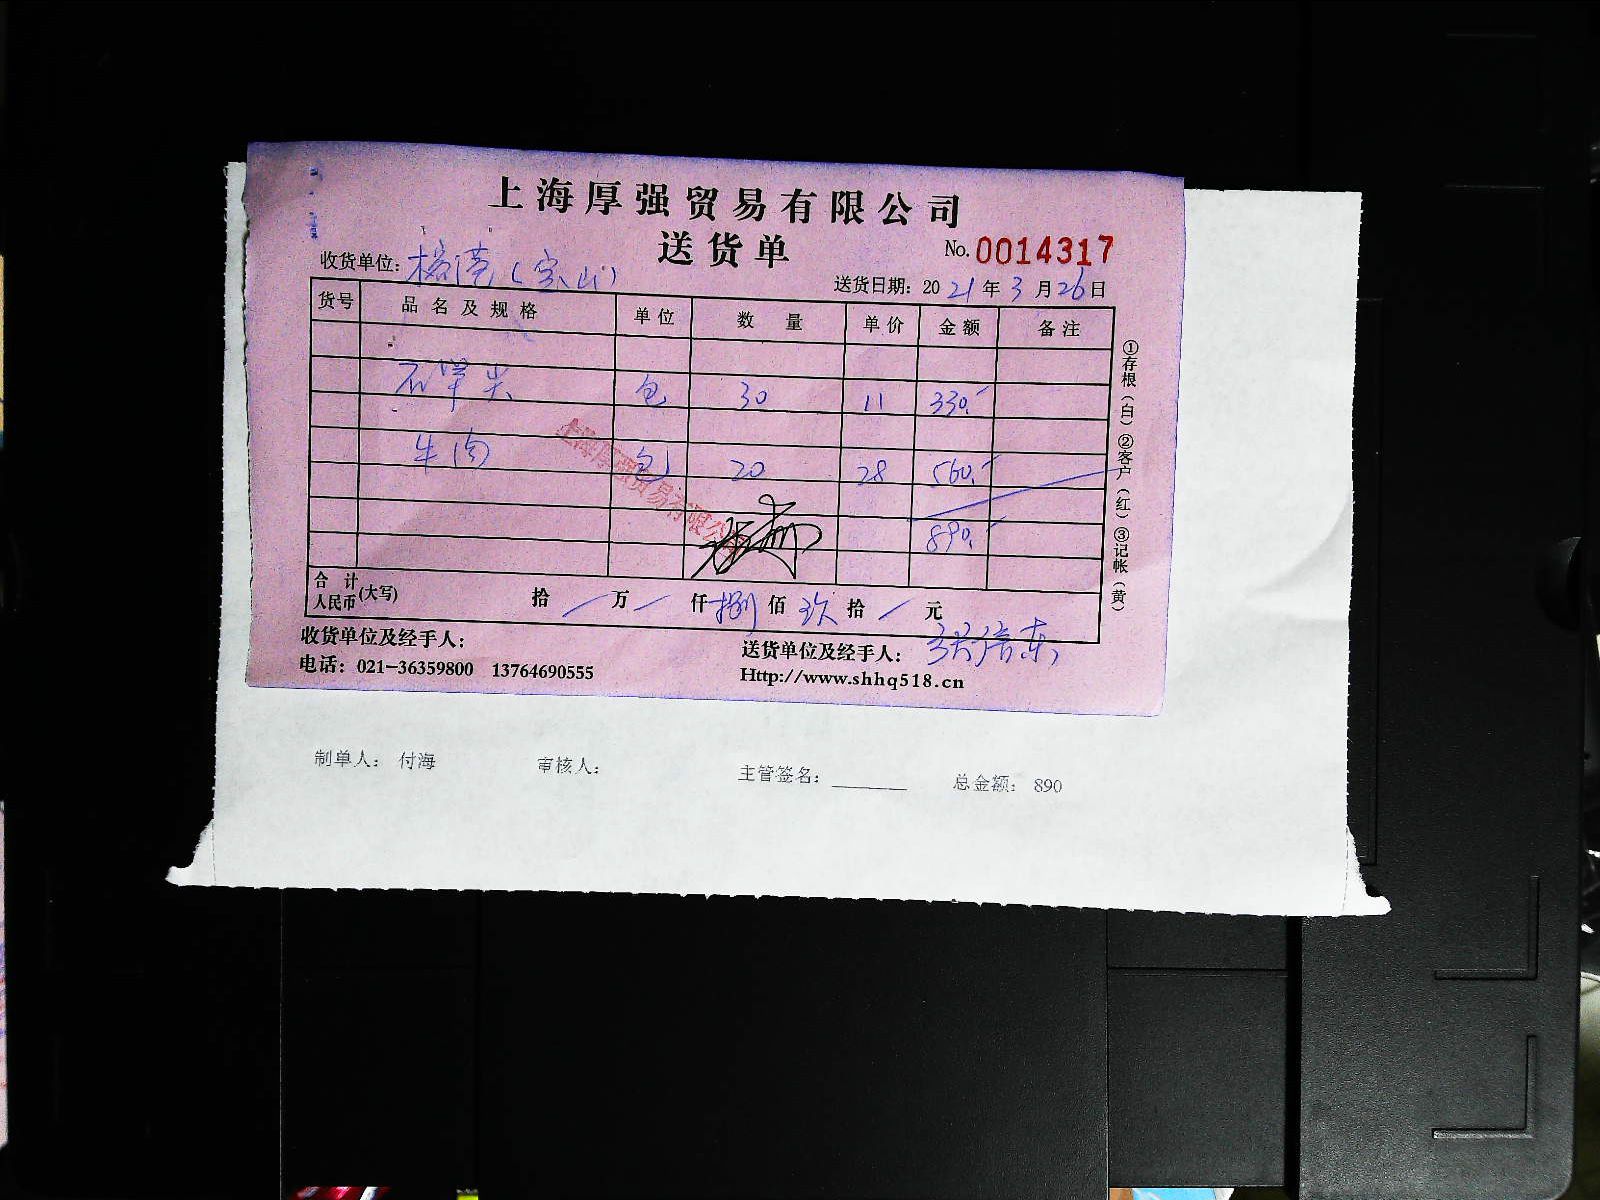 上海厚强贸易有限公司
送货单
No. 0014317
收货单位: (宝山)
送货日期: 2021年3月26日
货号 品名及规格 单位 数量 单价 金额 备注
包 30 11 330.-
牛肉 包 20 28 560.-
890.-
上海厚强贸易有限公司
合计人民币(大写) 拾 / 万 / 仟 捌 佰 玖 拾 / 元
收货单位及经手人:
送货单位及经手人:
电话: 021-36359800 13764690555
Http://www.shhq518.cn
①存根(白)②客户(红)③记帐(黄)
制单人: 付海 审核人: 主管签名: ______ 总金额: 890